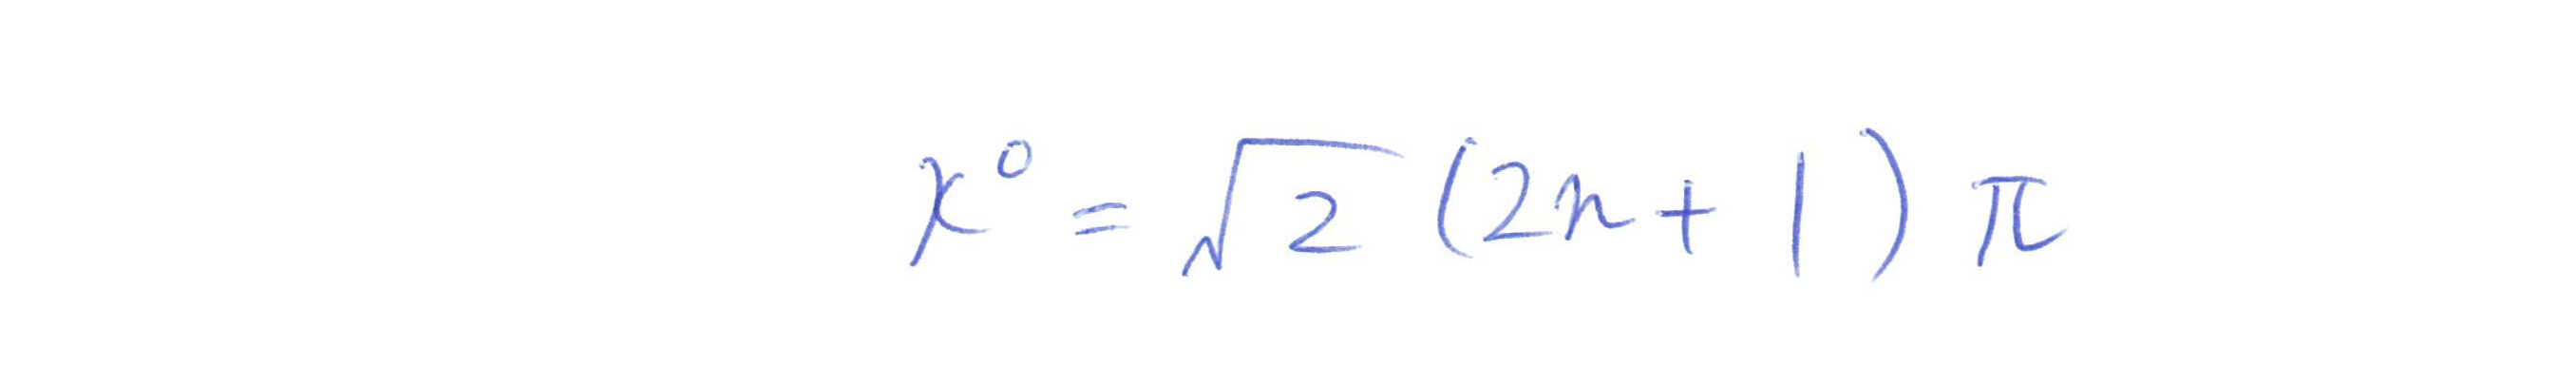 x⁰ = √2 (2n + 1) π